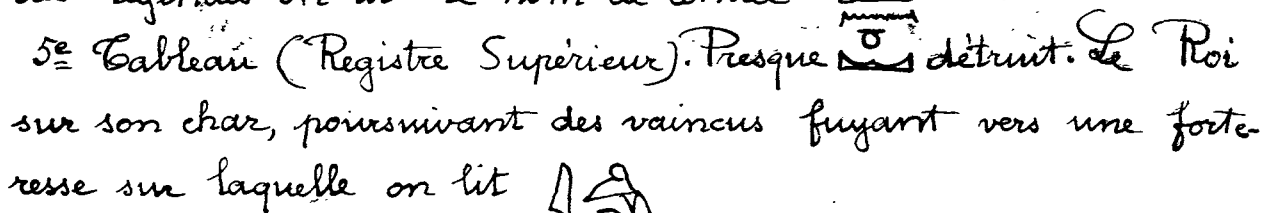 5e Tableau (Registre Supérieur). Presque détruit. Le Roi
sur son char, poursuivant des vaincus fuyant vers une forte-
resse sur laquelle on lit